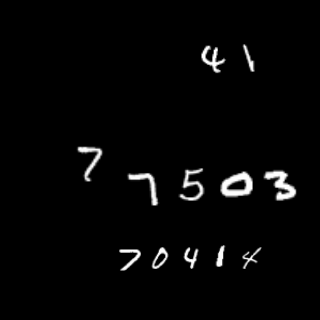 41
77503
70414